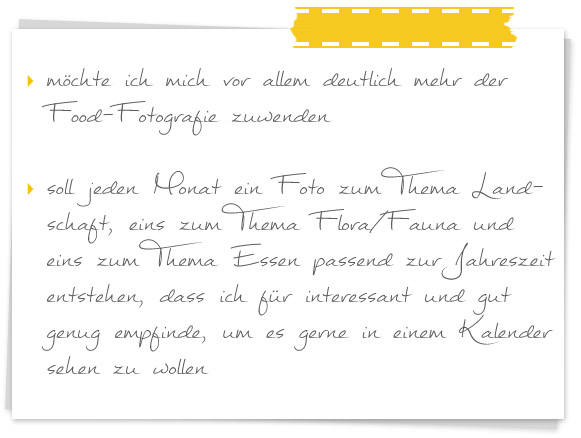 möchte ich mich vor allem deutlich mehr der
Food-Fotografie zuwenden
soll jeden Monat ein Foto zum Thema Land-
schaft, eins zum Thema Flora/Fauna und
eins zum Thema Essen passend zur Jahreszeit
entstehen, dass ich für interessant und gut
genug empfinde, um es gerne in einem Kalender
sehen zu wollen